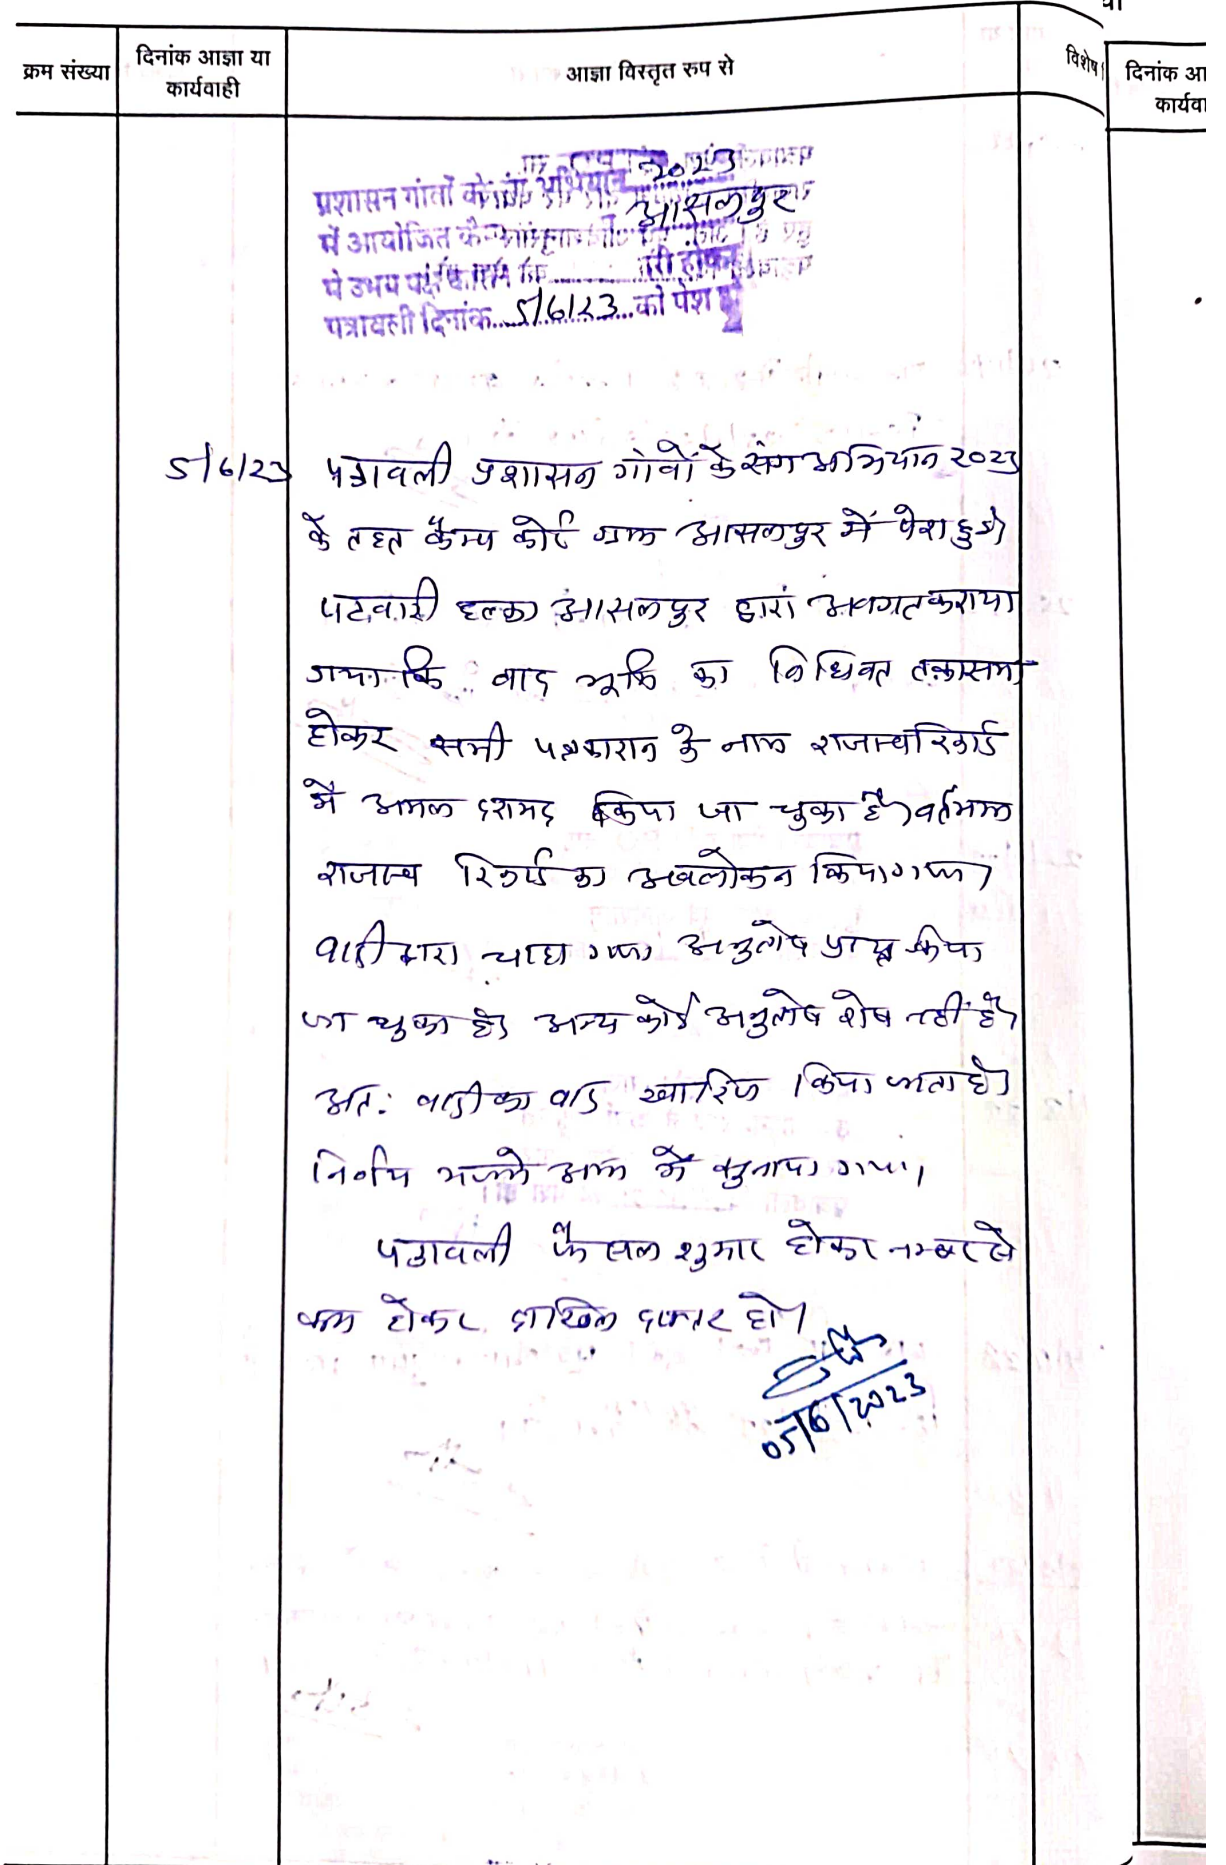 क्रम संख्या
दिनांक आज्ञा या
कार्यवाही
आज्ञा विस्तृत रुप से
विशेष
दिनांक आ
कार्यवा
2023
प्रशासन गांवों के संग अभियान
आसलपुर
में आयोजित कैम्प
में उभय पक्ष
पत्रावली दिनांक 5/6/23 को पेश हो
5/6/23 पत्रावली प्रशासन गांवों के संग अभियान 2023
के तहत कैम्प कोर्ट ग्राम आसलपुर में पेश हुई।
पटवारी हल्का आसलपुर द्वारा अवगत कराया
गया कि वाद भूमि का विधिवत तकासमा
होकर सभी पक्षकारान के नाम राजस्व रिकार्ड
में अमल दरामद किया जा चुका है। वर्तमान
राजस्व रिकार्ड का अवलोकन किया गया।
वादी द्वारा चाहा गया अनुतोष प्राप्त किया
जा चुका है। अन्य कोई अनुतोष शेष नहीं है।
अत: वादी का वाद खारिज किया जाता है।
निर्णय मजमे आम में सुनाया गया।
पत्रावली फैसल शुमार होकर नम्बर से
कम होकर दाखिल दफ्तर हो।
05/6/2023